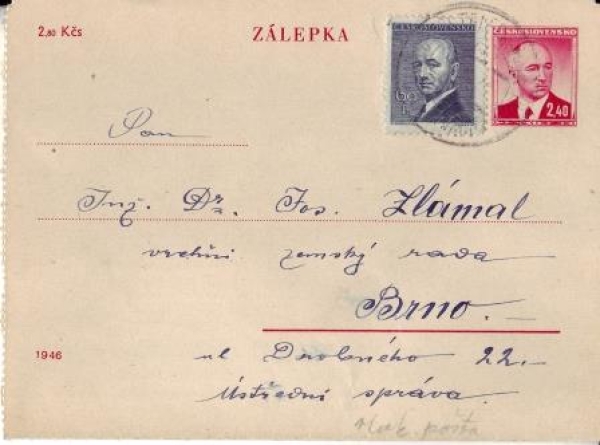 2,80 Kčs
ZÁLEPKA
ČESKOSLOVENSKO
60
ČESKOSLOVENSKO
2,40
Pan
Ing. Dr. Jos. Zlámal
vrchní zemský rada
Brno.
1946
ul Drobného 22.-
Ústřední správa.
pošta